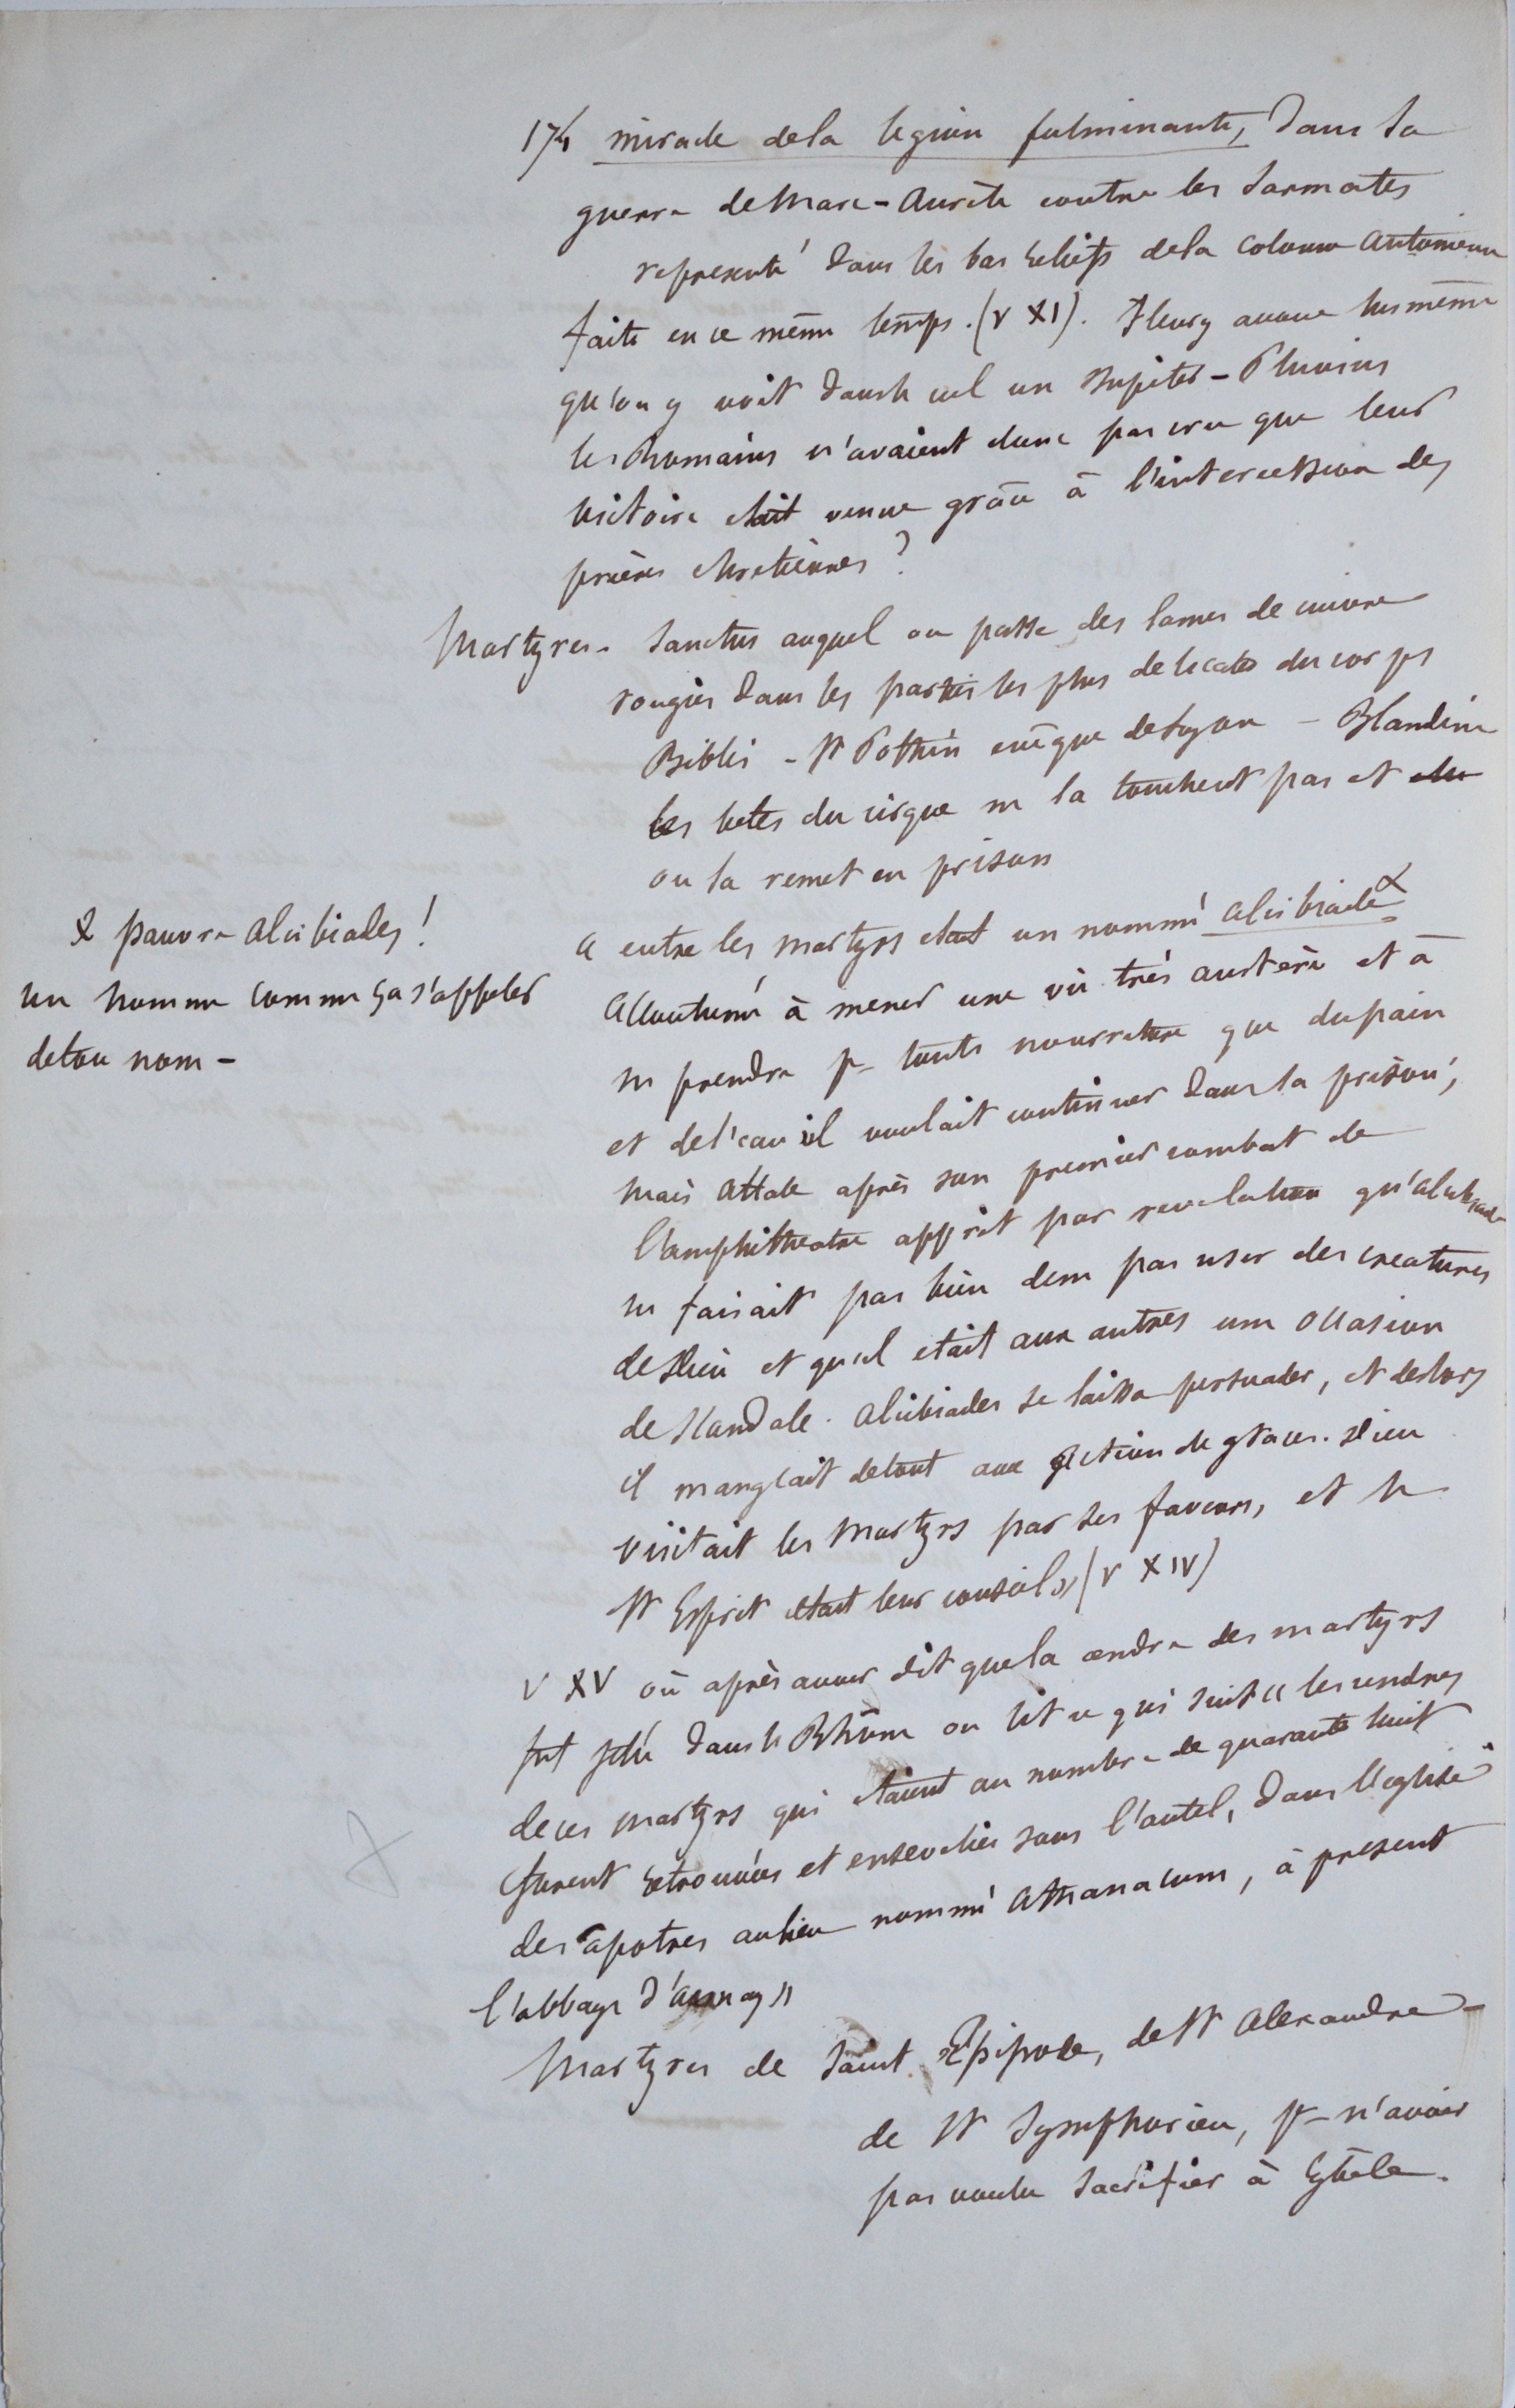 174 miracle de la legion fulminante, dans la
guerre de Marc-Aurèle contre les Sarmates
représenté dans les bas reliefs de la colonne antonienne
faite en ce même temps. (V XI). Fleury avoue lui même
qu'on y voit dans le ciel un Jupiter-Pluvius
les Romains n'avaient donc pas cru que leur
victoire était venue grâce à l'intercession des
prières chretiennes ?
Martyres. Sanctus auquel on passe des lames de cuivre
rougies dans les parties les plus delicates du corps
Biblis - St Pothin evêque de Lyon - Blandine
les betes du cirque ne la touchent pas et
on la remet en prison
« entre les martyrs etait un nommé alcibiade x
accoutumé à mener une vie très austère et à
ne prendre pr toute nourriture que du pain
et de l'eau il voulait continuer dans la prison,
mais Attale après son premier combat de
l'amphitheatre apprit par revelation qu'alcibiade
ne faisait pas bien de ne pas user des creatures
de Dieu et qu'il etait aux autres une occasion
de scandale. alcibiades se laissa persuader, et deslors
il mangeait de tout avec action de graces. Dieu
visitait les martyrs par ses faveurs, et le
St Esprit etait leur conseil » (V XIV)
x pauvre alcibiades !
un homme comme ça s'appeler
de ton nom -
V XV où après avoir dit que la cendre des martyrs
fut jetée dans le Rhône on lit ce qui suit « les cendres
de ces martyrs qui etaient au nombre de quarante huit
furent retrouvées et ensevelies sous l'autel, dans l'eglise
des apotres au lieu nommé Athanacum, à present
l'abbaye d'aisnay »
Martyres de Saint Epipode, de St Alexandre -
de St Symphorien, pr n'avoir
pas voulu sacrifier à Cybèle.